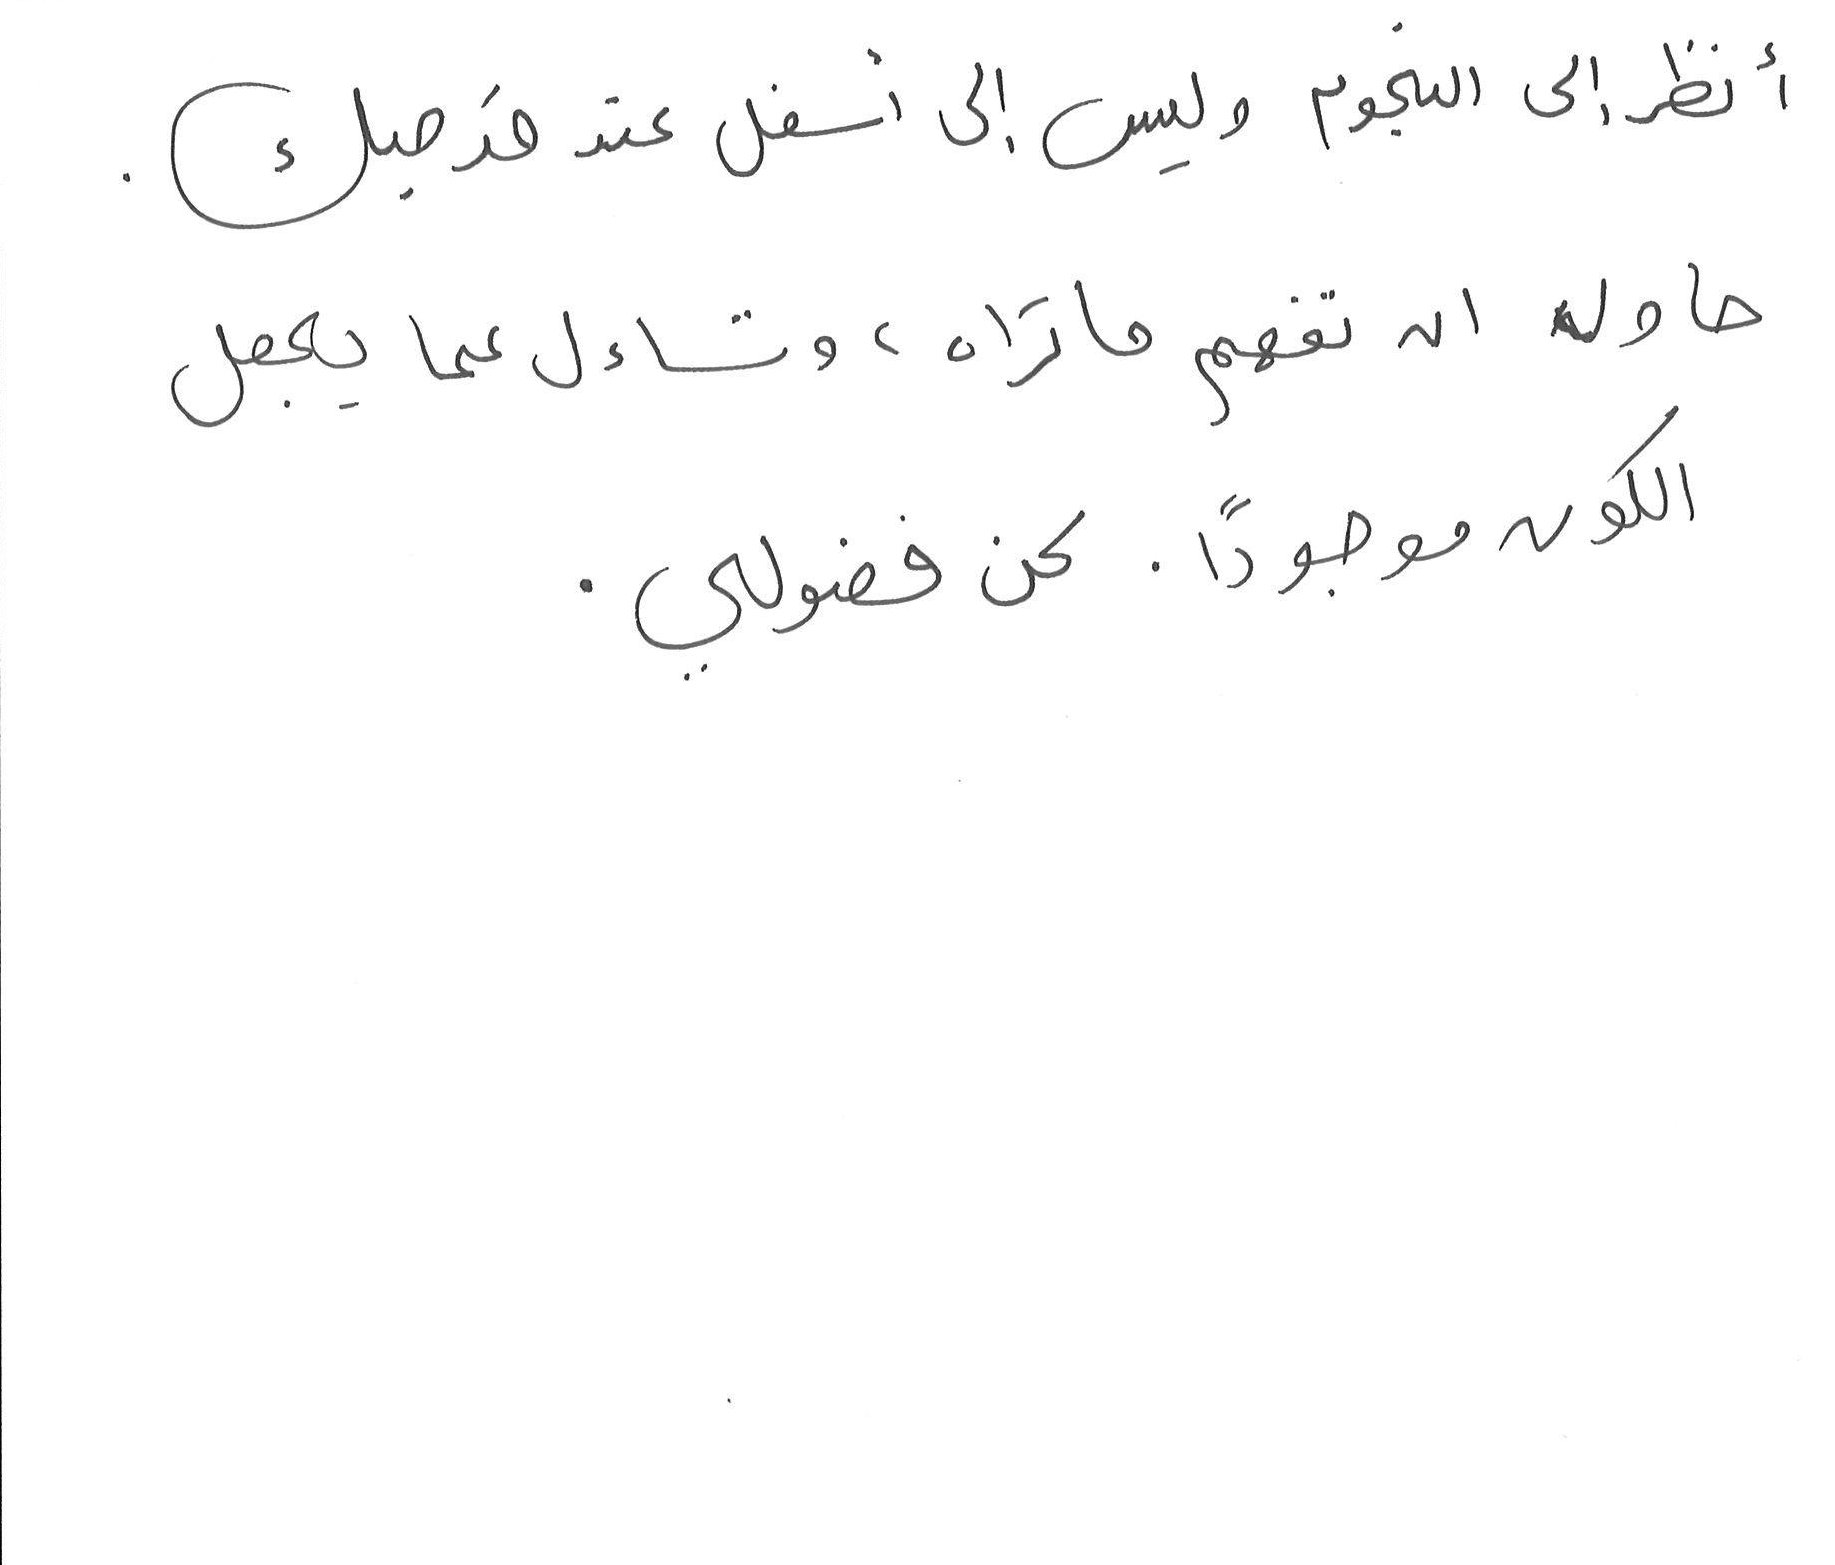 أنظر إلى النجوم وليس إلى أسفل عند قدميك .
حاول ان تفهم ما تراه ، وتساءل عما يجعل
الكون موجودًا . كن فضولي .